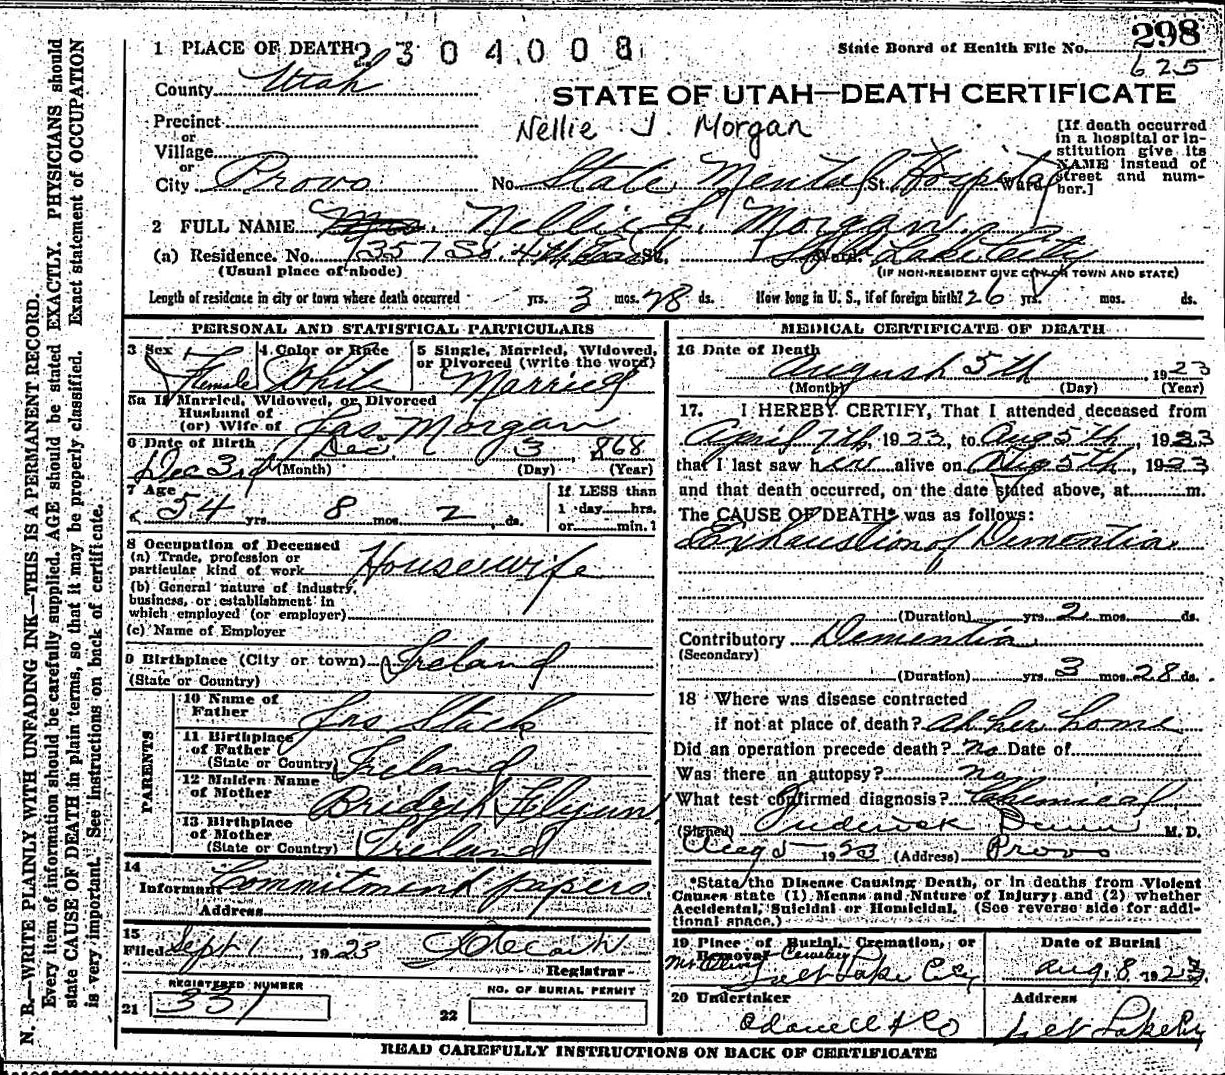 1 PLACE OF DEATH 2304008
State Board of Health File No. 298
625
County Utah
STATE OF UTAH—DEATH CERTIFICATE
Nellie J. Morgan
Precinct
or
Village
or
City Provo No. State Mental Hospital St. Ward
[If death occurred
in a hospital or in-
stitution give its
NAME instead of
street and num-
ber.]
2 FULL NAME Mrs. Nellie J. Morgan
(a) Residence. No. 1357 So. 4th East St. Ward. Salt Lake City
(Usual place of abode) (IF NON-RESIDENT GIVE CITY OR TOWN AND STATE)
Length of residence in city or town where death occurred yrs. 3 mos. 28 ds. How long in U. S., if of foreign birth? 26 yrs. mos. ds.
PERSONAL AND STATISTICAL PARTICULARS
3 Sex Female
4 Color or Race White
5 Single, Married, Widowed,
or Divorced (write the word)
Married
5a If Married, Widowed, or Divorced
Husband of
(or) Wife of Jas. Morgan
6 Date of Birth Dec. 3 1868
Dec 3rd (Month) (Day) (Year)
7 Age
54 yrs. 8 mos. 2 ds.
If LESS than
1 day hrs.
or min.
8 Occupation of Deceased
(a) Trade, profession or
particular kind of work Housewife
(b) General nature of industry,
business, or establishment in
which employed (or employer)
(c) Name of Employer
9 Birthplace (City or town) Ireland
(State or Country)
PARENTS
10 Name of
Father Jas Stack
11 Birthplace
of Father
(State or Country) Ireland
12 Maiden Name
of Mother Bridget Flynn
13 Birthplace
of Mother
(State or Country) Ireland
14
Informant Commitment papers
Address
15
Filed Sept 1 1923
Registrar
REGISTERED NUMBER
21 331
NO. OF BURIAL PERMIT
22
MEDICAL CERTIFICATE OF DEATH
16 Date of Death
August 5th 1923
(Month) (Day) (Year)
17. I HEREBY CERTIFY, That I attended deceased from
April 7th, 1923, to Aug 5th, 1923
that I last saw her alive on Aug 5th, 1923
and that death occurred, on the date stated above, at m.
The CAUSE OF DEATH* was as follows:
Exhaustion of Dementia
(Duration) yrs. 2 mos. ds.
Contributory Dementia
(Secondary)
(Duration) yrs. 3 mos. 28 ds.
18 Where was disease contracted
if not at place of death? at her home
Did an operation precede death? no Date of
Was there an autopsy? no
What test confirmed diagnosis? Chemical
(Signed) Frederick Dunn M. D.
Aug 5 1923 (Address) Provo
*State the Disease Causing Death, or in deaths from Violent
Causes state (1) Means and Nature of Injury; and (2) whether
Accidental, Suicidal or Homicidal. (See reverse side for addi-
tional space.)
19 Place of Burial, Cremation, or
Removal
Mt Olivet Cemetery
Salt Lake City
Date of Burial
Aug. 8, 1923
20 Undertaker
Odonell & Co
Address
Salt Lake City
READ CAREFULLY INSTRUCTIONS ON BACK OF CERTIFICATE
N. B.—WRITE PLAINLY WITH UNFADING INK—THIS IS A PERMANENT RECORD.
Every item of information should be carefully supplied. AGE should be stated EXACTLY. PHYSICIANS should
state CAUSE OF DEATH in plain terms, so that it may be properly classified. Exact statement of OCCUPATION
is very important. See instructions on back of certificate.